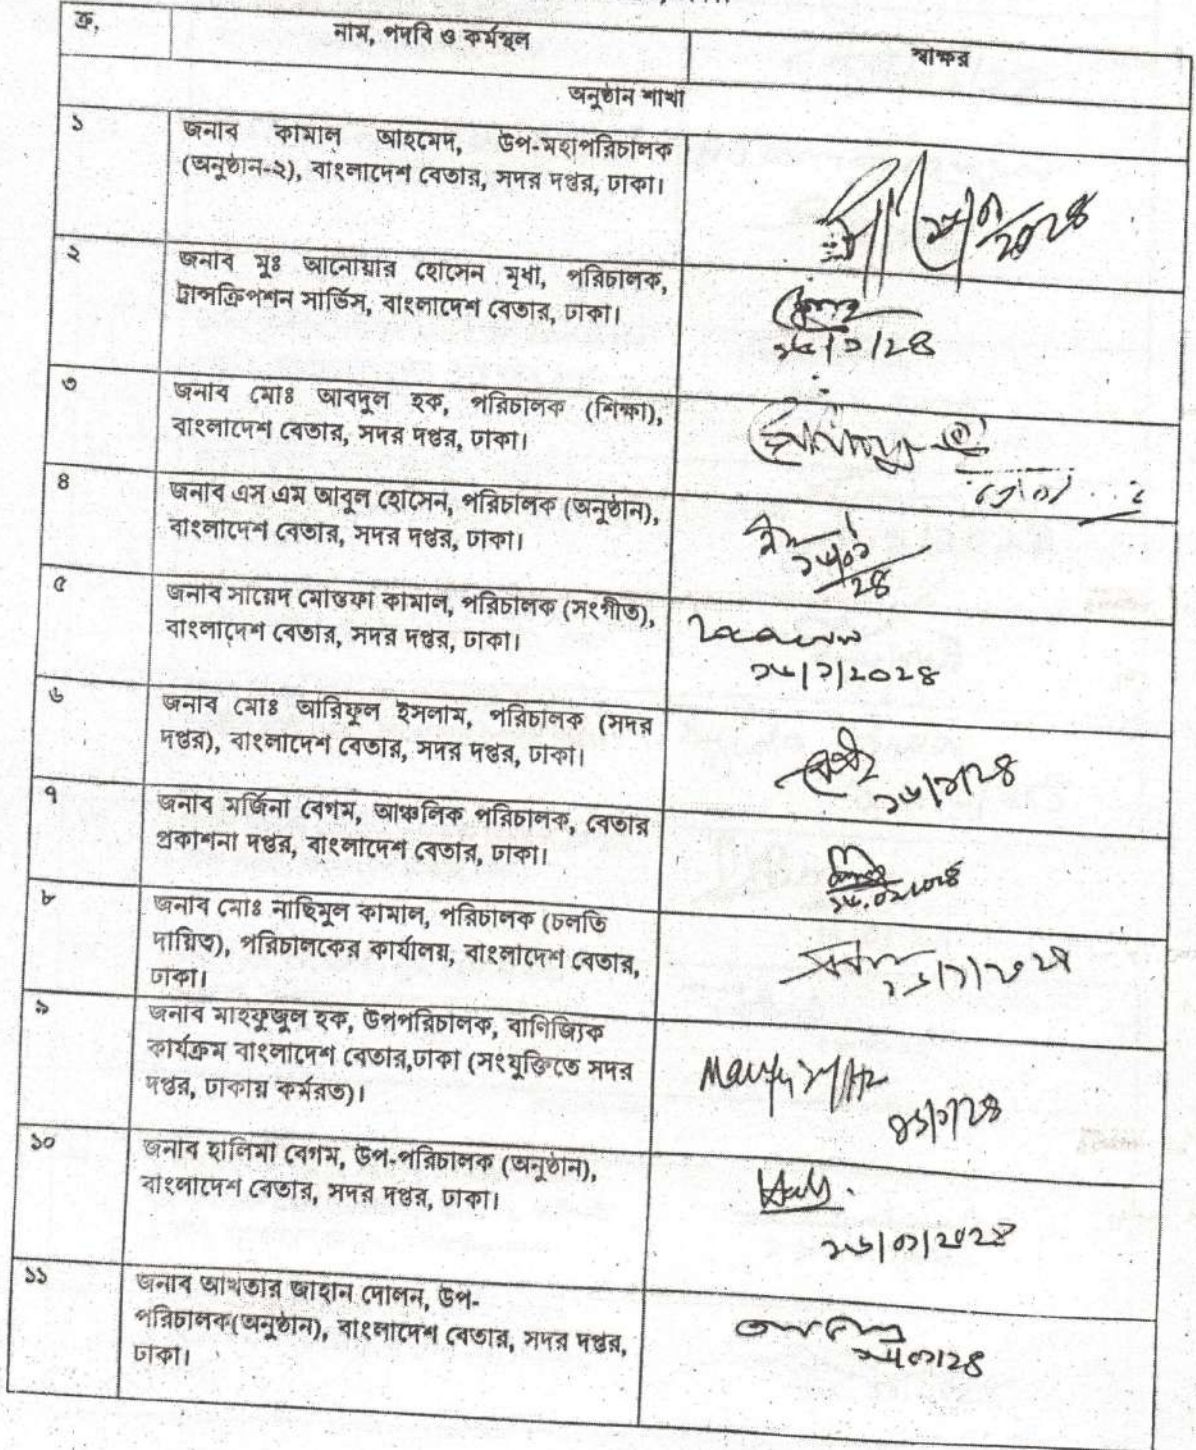 ক্র,
নাম, পদবি ও কর্মস্থল
স্বাক্ষর
অনুষ্ঠান শাখা
১
জনাব কামাল আহমেদ, উপ-মহাপরিচালক
(অনুষ্ঠান-২), বাংলাদেশ বেতার, সদর দপ্তর, ঢাকা।
২
জনাব মুঃ আনোয়ার হোসেন মৃধা, পরিচালক,
ট্রান্সক্রিপশন সার্ভিস, বাংলাদেশ বেতার, ঢাকা।
৩
জনাব মোঃ আবদুল হক, পরিচালক (শিক্ষা),
বাংলাদেশ বেতার, সদর দপ্তর, ঢাকা।
৪
জনাব এস এম আবুল হোসেন, পরিচালক (অনুষ্ঠান),
বাংলাদেশ বেতার, সদর দপ্তর, ঢাকা।
৫
জনাব সায়েদ মোস্তফা কামাল, পরিচালক (সংগীত),
বাংলাদেশ বেতার, সদর দপ্তর, ঢাকা।
৬
জনাব মোঃ আরিফুল ইসলাম, পরিচালক (সদর
দপ্তর), বাংলাদেশ বেতার, সদর দপ্তর, ঢাকা।
৭
জনাব মর্জিনা বেগম, আঞ্চলিক পরিচালক, বেতার
প্রকাশনা দপ্তর, বাংলাদেশ বেতার, ঢাকা।
৮
জনাব মোঃ নাছিমুল কামাল, পরিচালক (চলতি
দায়িত্ব), পরিচালকের কার্যালয়, বাংলাদেশ বেতার,
ঢাকা।
৯
জনাব মাহফুজুল হক, উপপরিচালক, বাণিজ্যিক
কার্যক্রম বাংলাদেশ বেতার,ঢাকা (সংযুক্তিতে সদর
দপ্তর, ঢাকায় কর্মরত)।
১০
জনাব হালিমা বেগম, উপ-পরিচালক (অনুষ্ঠান),
বাংলাদেশ বেতার, সদর দপ্তর, ঢাকা।
১১
জনাব আখতার জাহান দোলন, উপ-
পরিচালক(অনুষ্ঠান), বাংলাদেশ বেতার, সদর দপ্তর,
ঢাকা।